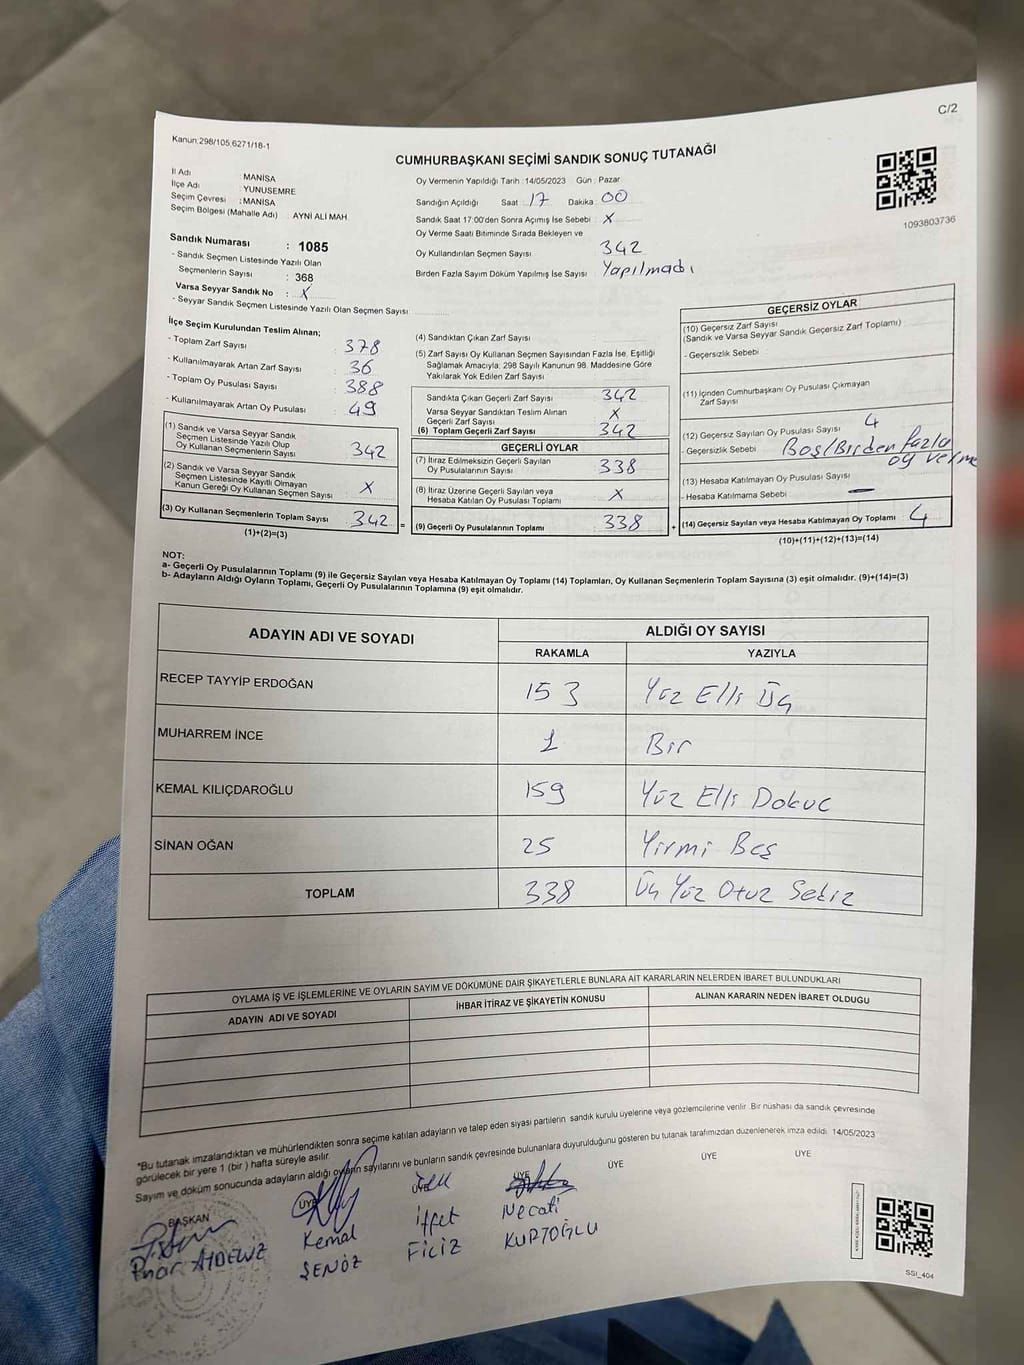 C/2
Kanun.298/105,6271/18-1
CUMHURBAŞKANI SEÇİMİ SANDIK SONUÇ TUTANAĞI
1093803736
İl Adı : MANİSA
İlçe Adı : YUNUSEMRE
Seçim Çevresi : MANİSA
Seçim Bölgesi (Mahalle Adı) : AYNİ ALİ MAH.
Sandık Numarası : 1085
- Sandık Seçmen Listesinde Yazılı Olan
Seçmenlerin Sayısı : 368
Varsa Seyyar Sandık No : X
- Seyyar Sandık Seçmen Listesinde Yazılı Olan Seçmen Sayısı
Oy Vermenin Yapıldığı Tarih : 14/05/2023 Gün : Pazar
Sandığın Açıldığı Saat : 17 Dakika : 00
Sandık Saat 17:00'den Sonra Açımış İse Sebebi : X
Oy Verme Saati Bitiminde Sırada Bekleyen ve
Oy Kullandırılan Seçmen Sayısı : 342
Birden Fazla Sayım Döküm Yapılmış İse Sayısı : Yapılmadı
İlçe Seçim Kurulundan Teslim Alınan;
- Toplam Zarf Sayısı : 378
- Kullanılmayarak Artan Zarf Sayısı : 36
- Toplam Oy Pusulası Sayısı : 388
- Kullanılmayarak Artan Oy Pusulası : 49
(1) Sandık ve Varsa Seyyar Sandık
Seçmen Listesinde Yazılı Olup
Oy Kullanan Seçmenlerin Sayısı : 342
(2) Sandık ve Varsa Seyyar Sandık
Seçmen Listesinde Kayıtlı Olmayan
Kanun Gereği Oy Kullanan Seçmen Sayısı : X
(3) Oy Kullanan Seçmenlerin Toplam Sayısı : 342 =
(1)+(2)=(3)
(4) Sandıktan Çıkan Zarf Sayısı
(5) Zarf Sayısı Oy Kullanan Seçmen Sayısından Fazla İse, Eşitliği
Sağlamak Amacıyla; 298 Sayılı Kanunun 98. Maddesine Göre
Yakılarak Yok Edilen Zarf Sayısı
Sandıkta Çıkan Geçerli Zarf Sayısı : 342
Varsa Seyyar Sandıktan Teslim Alınan
Geçerli Zarf Sayısı : X
(6) Toplam Geçerli Zarf Sayısı : 342
GEÇERLİ OYLAR
(7) İtiraz Edilmeksizin Geçerli Sayılan
Oy Pusulalarının Sayısı : 338
(8) İtiraz Üzerine Geçerli Sayılan veya
Hesaba Katılan Oy Pusulası Toplamı : X
(9) Geçerli Oy Pusulalarının Toplamı : 338 +
GEÇERSİZ OYLAR
(10) Geçersiz Zarf Sayısı
(Sandık ve Varsa Seyyar Sandık Geçersiz Zarf Toplamı)
- Geçersizlik Sebebi
(11) İçinden Cumhurbaşkanı Oy Pusulası Çıkmayan
Zarf Sayısı
(12) Geçersiz Sayılan Oy Pusulası Sayısı : 4
- Geçersizlik Sebebi : Boş/Birden fazla
oy verme
(13) Hesaba Katılmayan Oy Pusulası Sayısı : —
- Hesaba Katılmama Sebebi
(14) Geçersiz Sayılan veya Hesaba Katılmayan Oy Toplamı : 4
(10)+(11)+(12)+(13)=(14)
NOT:
a- Geçerli Oy Pusulalarının Toplamı (9) ile Geçersiz Sayılan veya Hesaba Katılmayan Oy Toplamı (14) Toplamları, Oy Kullanan Seçmenlerin Toplam Sayısına (3) eşit olmalıdır. (9)+(14)=(3)
b- Adayların Aldığı Oyların Toplamı, Geçerli Oy Pusulalarının Toplamına (9) eşit olmalıdır.
ADAYIN ADI VE SOYADI ALDIĞI OY SAYISI
RAKAMLA YAZIYLA
RECEP TAYYİP ERDOĞAN 153 Yüz Elli Üç
MUHARREM İNCE 1 Bir
KEMAL KILIÇDAROĞLU 159 Yüz Elli Dokuz
SİNAN OĞAN 25 Yirmi Beş
TOPLAM 338 Üç Yüz Otuz Sekiz
OYLAMA İŞ VE İŞLEMLERİNE VE OYLARIN SAYIM VE DÖKÜMÜNE DAİR ŞİKAYETLERLE BUNLARA AİT KARARLARIN NELERDEN İBARET BULUNDUKLARI
ADAYIN ADI VE SOYADI İHBAR İTİRAZ VE ŞİKAYETİN KONUSU ALINAN KARARIN NEDEN İBARET OLDUĞU
"Bu tutanak imzalandıktan ve mühürlendikten sonra seçime katılan adayların ve talep eden siyasi partilerin sandık kurulu üyelerine veya gözlemcilerine verilir. Bir nüshası da sandık çevresinde
görülecek bir yere 1 (bir) hafta süreyle asılır.
Sayım ve döküm sonucunda adayların aldığı oyların sayılarını ve bunların sandık çevresinde bulunanlara duyurulduğunu gösteren bu tutanak tarafımızdan düzenlenerek imza edildi. 14/05/2023
BAŞKAN ÜYE ÜYE ÜYE ÜYE ÜYE ÜYE
Pınar AYDENİZ
Kemal
ŞENÖZ
İffet
FİLİZ
Necati
KURTOĞLU
SSI_404